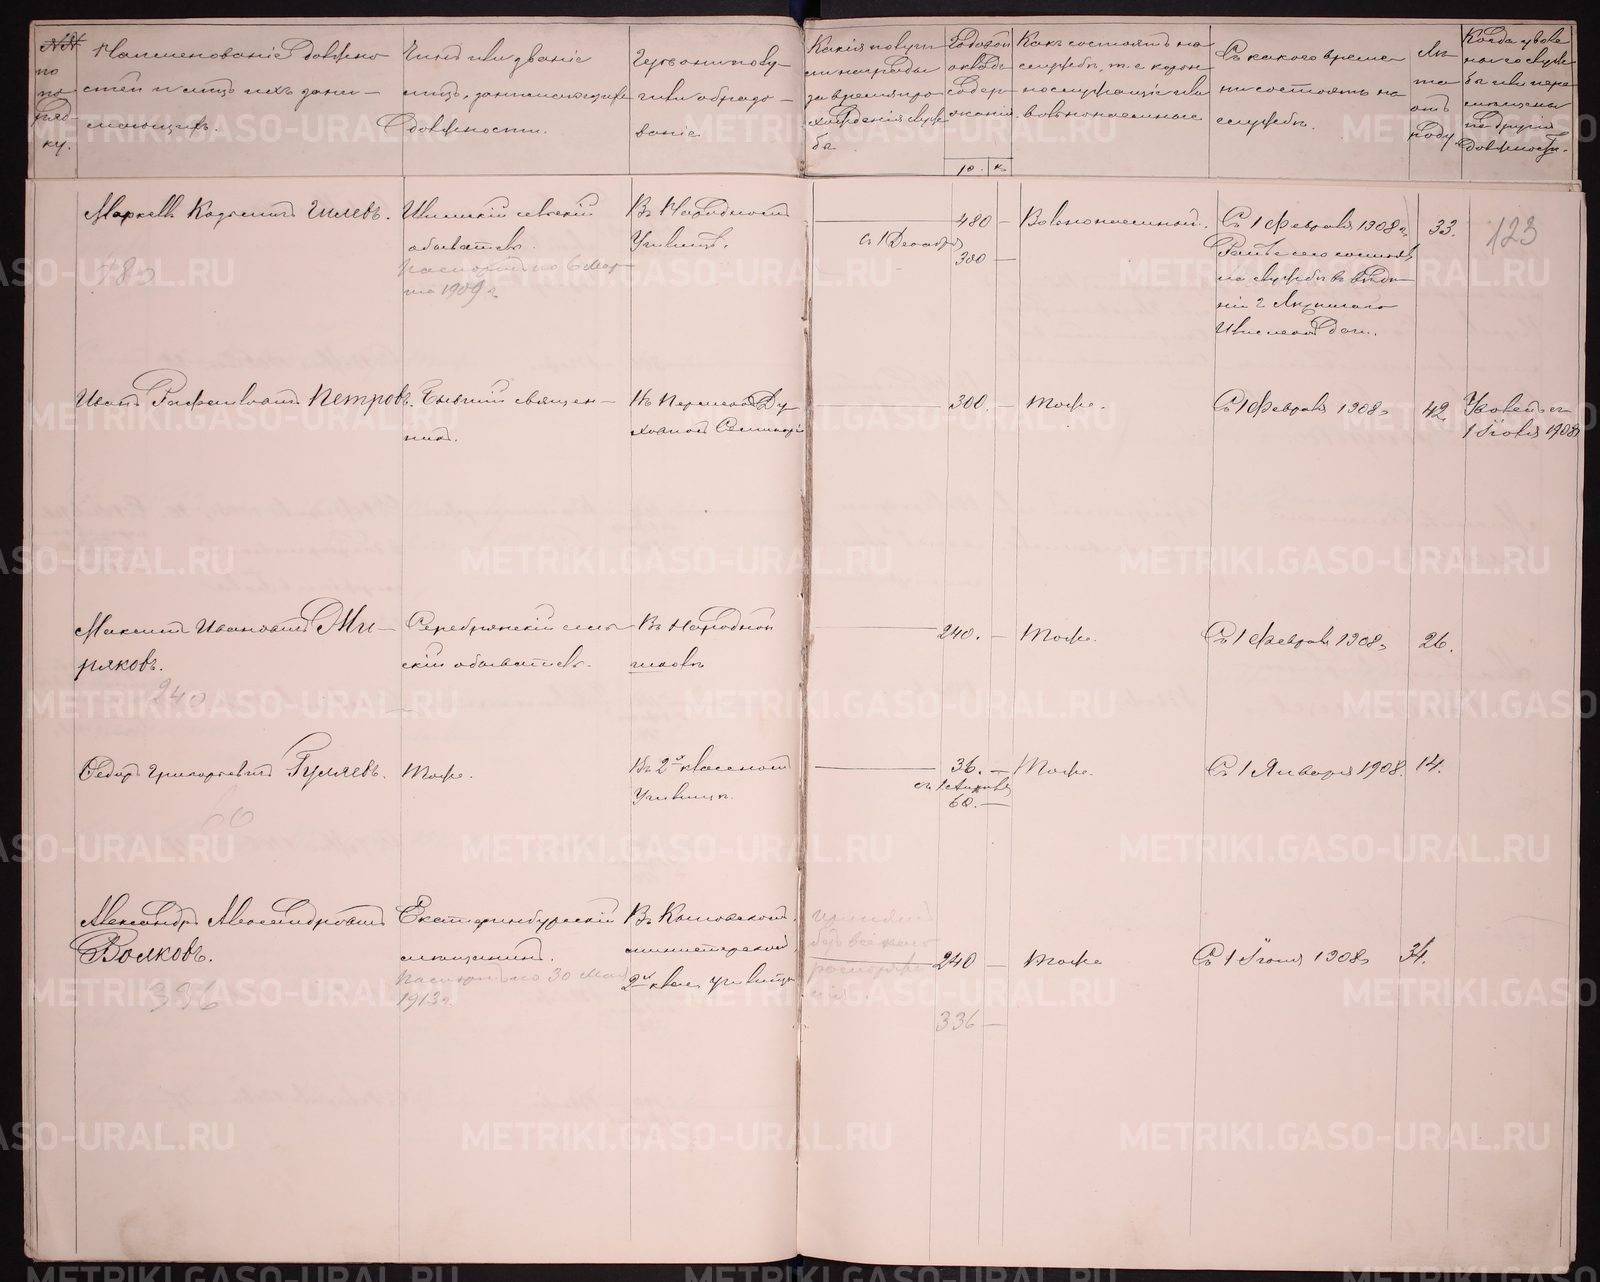 №№ по по ряд- ку.
Наименованіе должно
стей и лицъ ихъ зани-
мающихъ.
Чинъ или званіе
лицъ, занимающихъ
должности.
Гдѣ они полу-
чили образо-
ваніе
Какія получи
ли награды
за время про
хожденія служ
бы
Годовой
окладъ
содер-
жанія.
р. к.
Какъ состоятъ на
службѣ, т.е. корон
но служащіе или
вольнонаемные
Съ какого време-
ни состоитъ на
службѣ.
Лѣ-
та
отъ
роду
Когда уволе
на со служ
бы или пере
мѣщены
на другія
должности.
Маркелъ
Гилевъ.
сельскій
обыватель.
Паспортъ по 6 мар-
та 1909 г.
480
Въ Народномъ
Училищѣ.
480 —
съ 1 Декабря
300 —
Вольнонаемный.
Съ 1 Февраля 1908 г.
Ранѣе сего состоялъ
на службѣ въ вѣдѣ-
ніи
33.
123
Иванъ Рафаиловичъ Петровъ.
Бывшій священ-
никъ.
Въ Пермской Ду-
ховной Семинаріи
300. —
Тоже.
Съ 1 Февраля 1908 г.
42.
Уволенъ съ
1 Іюля 1908 г.
Максимъ Ивановичъ Ми-
ряковъ.
240
Серебрянскій сель-
скій обыватель.
Въ Народной
школѣ
240. —
Тоже.
Съ 1 Февраля 1908 г.
26.
Федоръ Григорьевичъ Гуляевъ.
60
Тоже.
Въ 2х классномъ
Училищѣ.
36. —
съ 1 Апрѣля
60. —
Тоже.
Съ 1 Января 1908.
14.
Александръ Александровичъ
Волковъ.
336
Екатеринбургскій
мѣщанинъ.
Паспортъ по 30 Мая
1913 г.
Въ
министерскомъ
2х класс. училищѣ
240 —
336 —
Тоже
Съ 1 Іюня 1908 г.
34.
METRIKI.GASO-URAL.RU